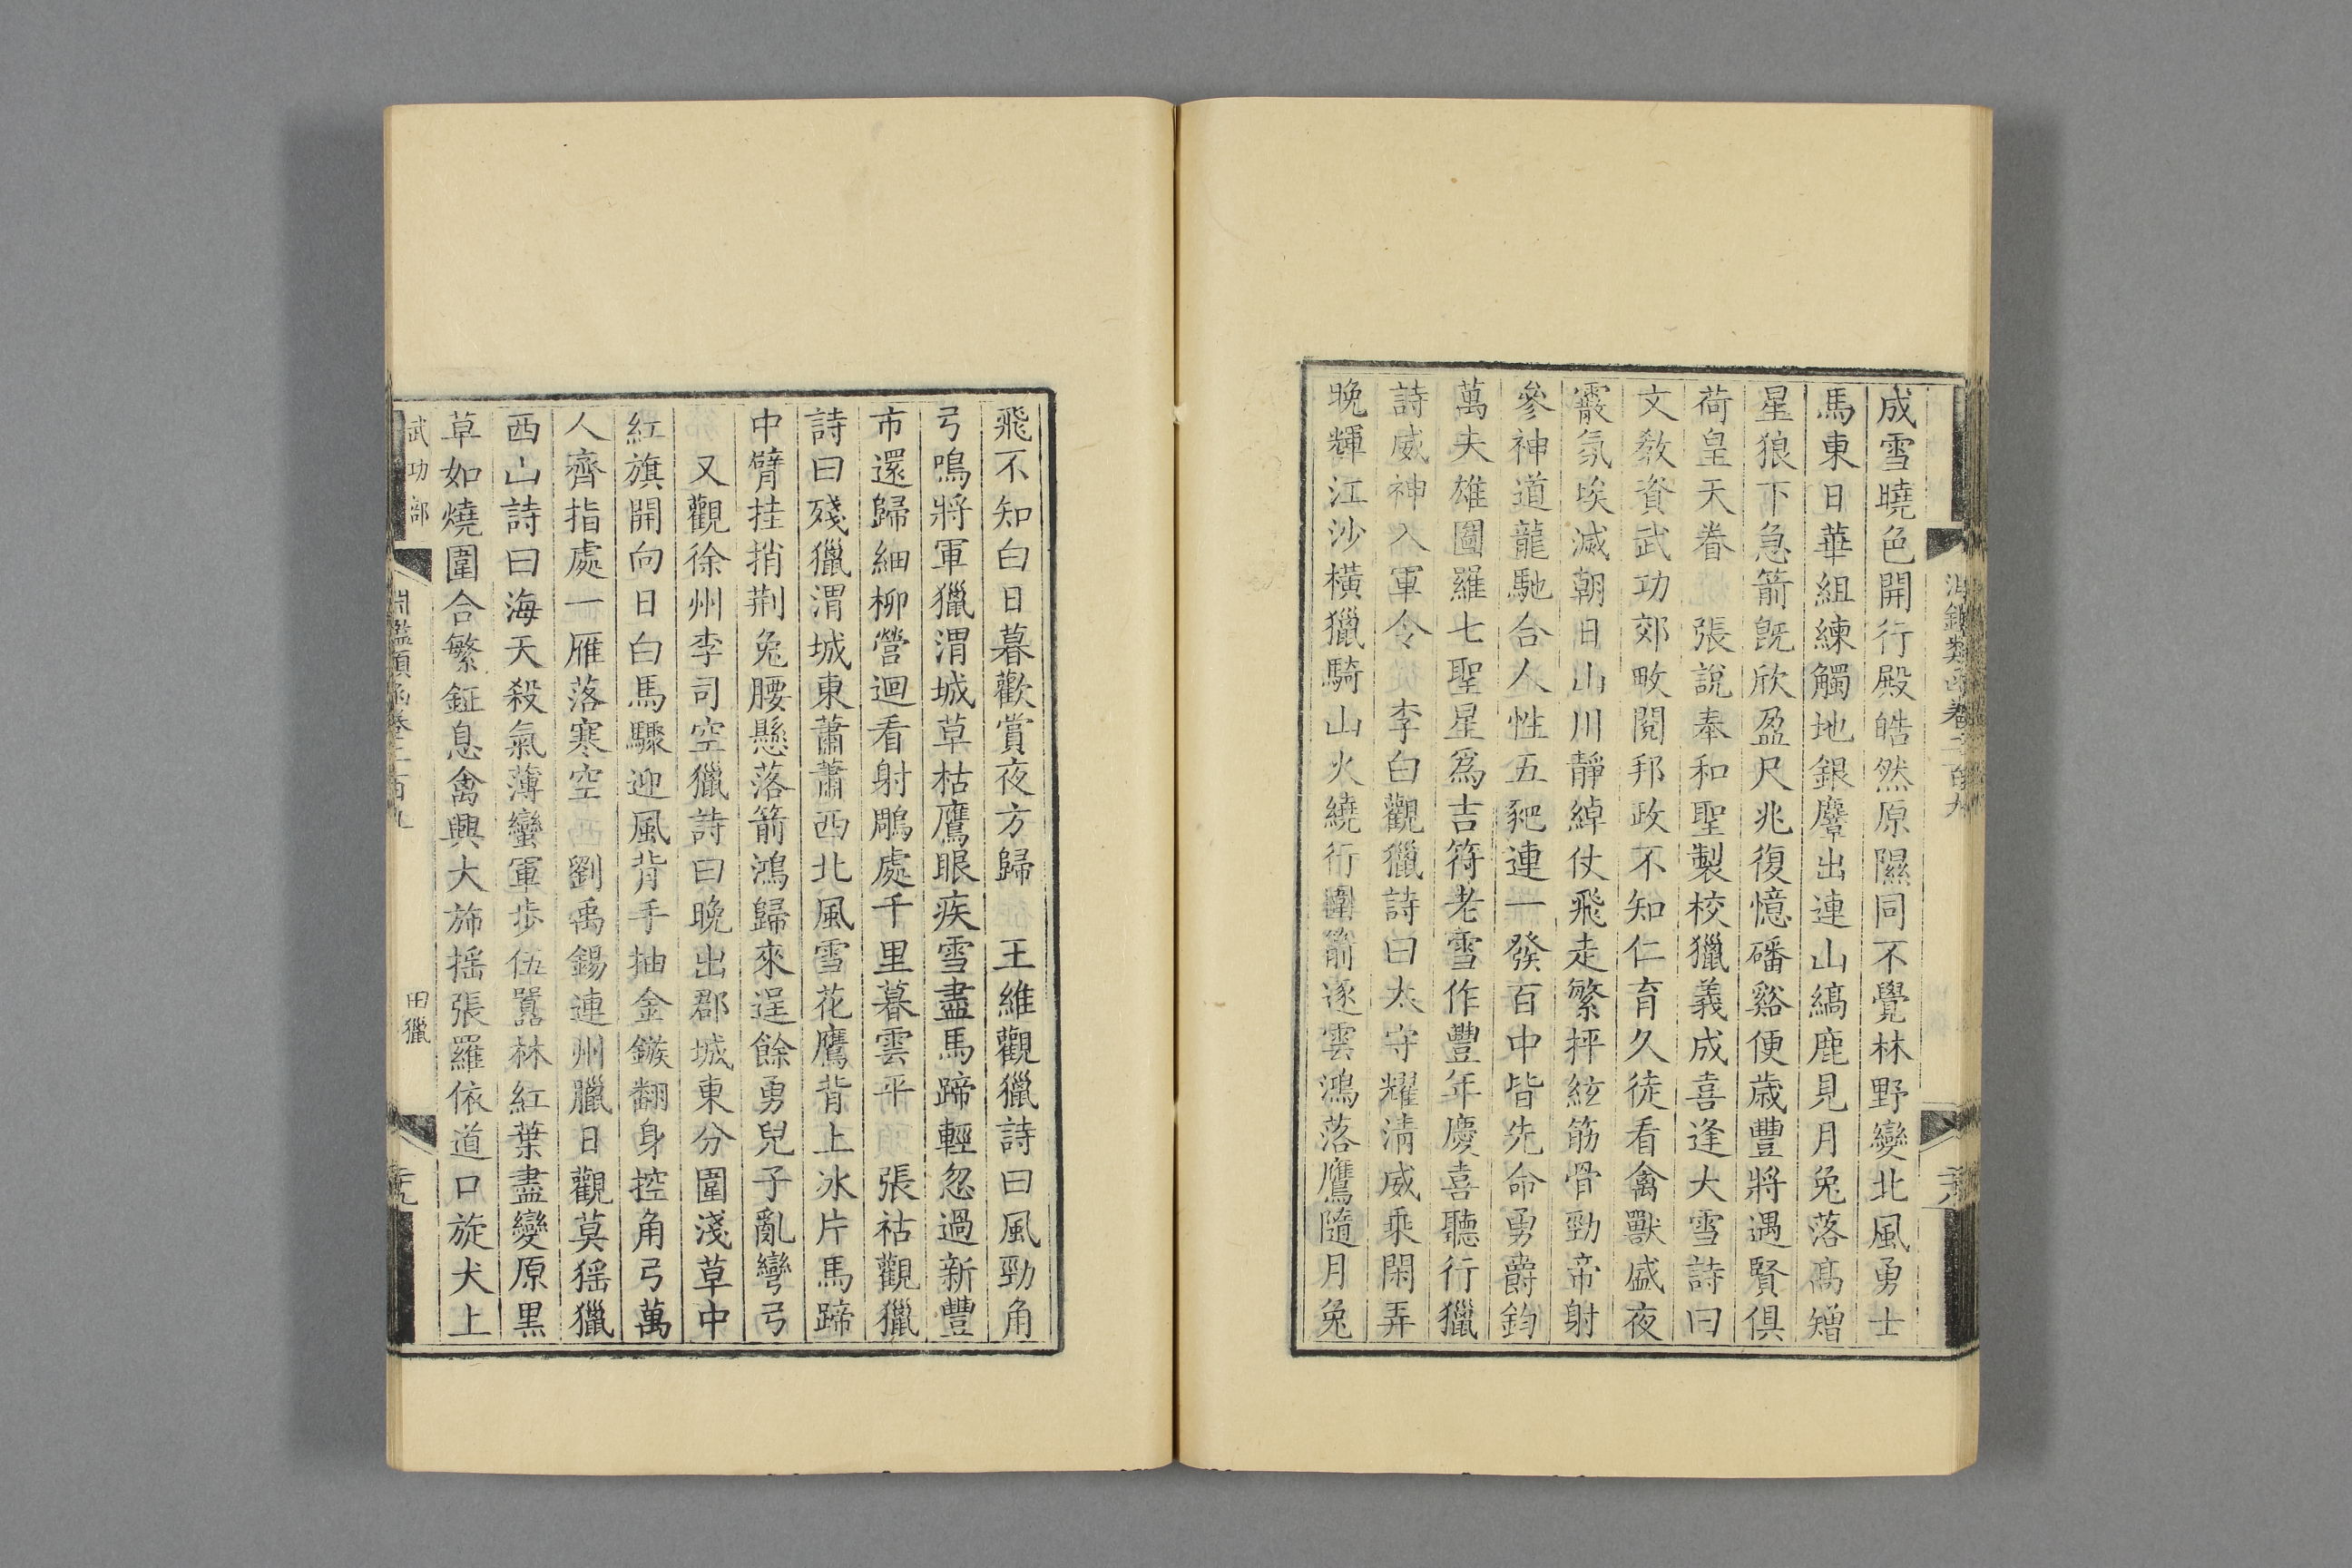 成雪曉色開行殿皓然原隰同不覺林野變北風勇士
馬東日華組練觸地銀麞出連山縞鹿見月兔落高矰
星狼下急箭旣欣盈尺兆復憶磻谿便歲豐將遇賢俱
荷皇天眷　張說奉和聖製校獵義成喜逢大雪詩曰
文敎資武功郊畋閱邦政不知仁育久徒看禽獸盛夜
霰氛埃滅朝日山川靜綽仗飛走繁抨絃筋骨勁帝射
參神道龍馳合人性五豝連一發百中皆先命勇爵鈞
萬夫雄圖羅七聖星爲吉符老雪作豐年慶喜聽行獵
詩威神入軍令　李白觀獵詩曰太守耀淸威乘閑弄
晚輝江沙橫獵騎山火繞行圍箭逐雲鴻落鷹隨月兔
飛不知白日暮歡賞夜方歸　王維觀獵詩曰風勁角
弓鳴將軍獵渭城草枯鷹眼疾雪盡馬蹄輕忽過新豐
市還歸細柳營迴看射鵰處千里暮雲平　張祜觀獵
詩曰殘獵渭城東蕭蕭西北風雪花鷹背上冰片馬蹄
中臂挂捎荆兔腰懸落箭鴻歸來逞餘勇兒子亂彎弓
又觀徐州李司空獵詩曰晚出郡城東分圍淺草中
紅旗開向日白馬驟迎風背手抽金鏃翻身控角弓萬
人齊指處一雁落寒空　劉禹錫連州臘日觀莫猺獵
西山詩曰海天殺氣薄蠻軍步伍囂林紅葉盡變原黑
草如燒圍合繁鉦息禽興大斾搖張羅依道口旋犬上
武功部
田獵